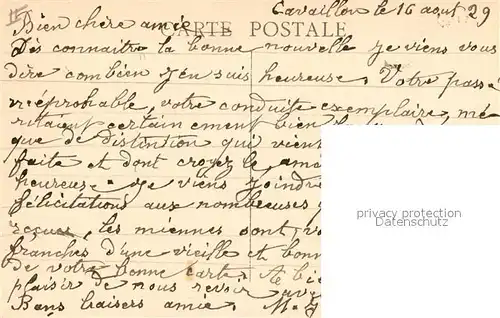 Cavaillon le 16 aout 29
Bien chère amie
CARTE POSTALE
Dès connaitre la bonne nouvelle je viens vous
dire combien j'en suis heureuse. Votre passé
iréprobable, votre conduite exemplaire, mé
ritaient certainement bien
que de distintion qui vient
faite et dont croyez le,
heureuse. je viens joindre
félicitations aux nombreuses
reçues, les miennes sont,
franches d'une vieille et
de votre bonne carte. A
plaisir de nous revoir
Bons baisers amie. M.
privacy protection
Datenschutz